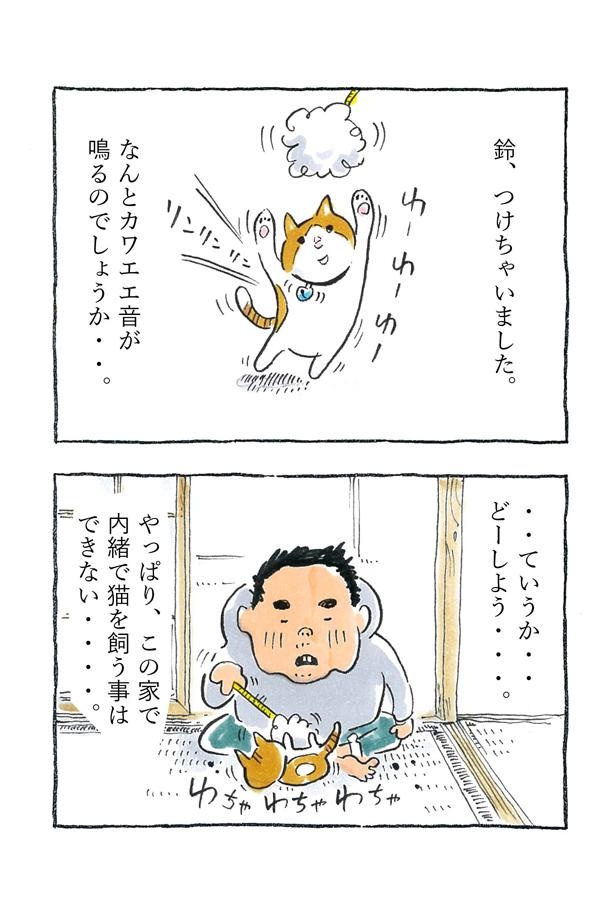 鈴、つけちゃいました。
ゆーゆーゆー
リンリンリン
なんとカワエエ音が
鳴るのでしょうか・・。
・・ていうか・・
どーしよう・・・・。
やっぱり、この家で
内緒で猫を飼う事は
できない・・・・。
わちゃわちゃわちゃ